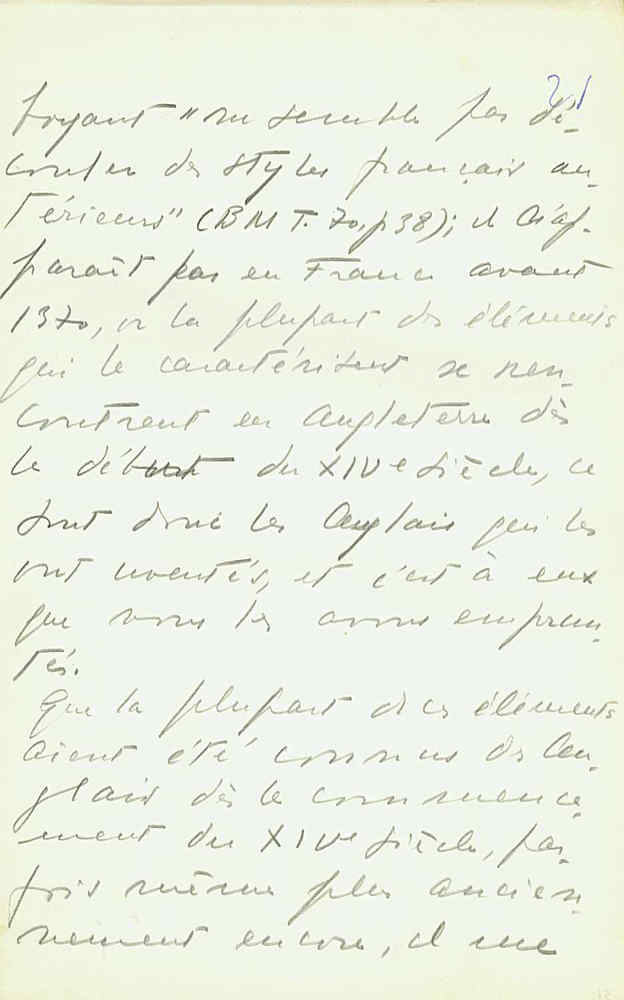 21
boyant "ne semble pas dé-
couler des styles français an-
térieurs" (BM T. 70, p 38); il n'ap-
paraît pas en France avant
1370, or la plupart des éléments
qui le caractérisent se ren-
contrent en Angleterre dès
le début du XIVe siècle, ce
sont donc les Anglais qui les
ont inventés, et c'est à eux
que nous les avons emprun-
tés.
Que la plupart de ces éléments
aient été connus des An-
glais dès le commence-
ment du XIVe siècle, par-
fois même plus ancien-
nement encore, il me